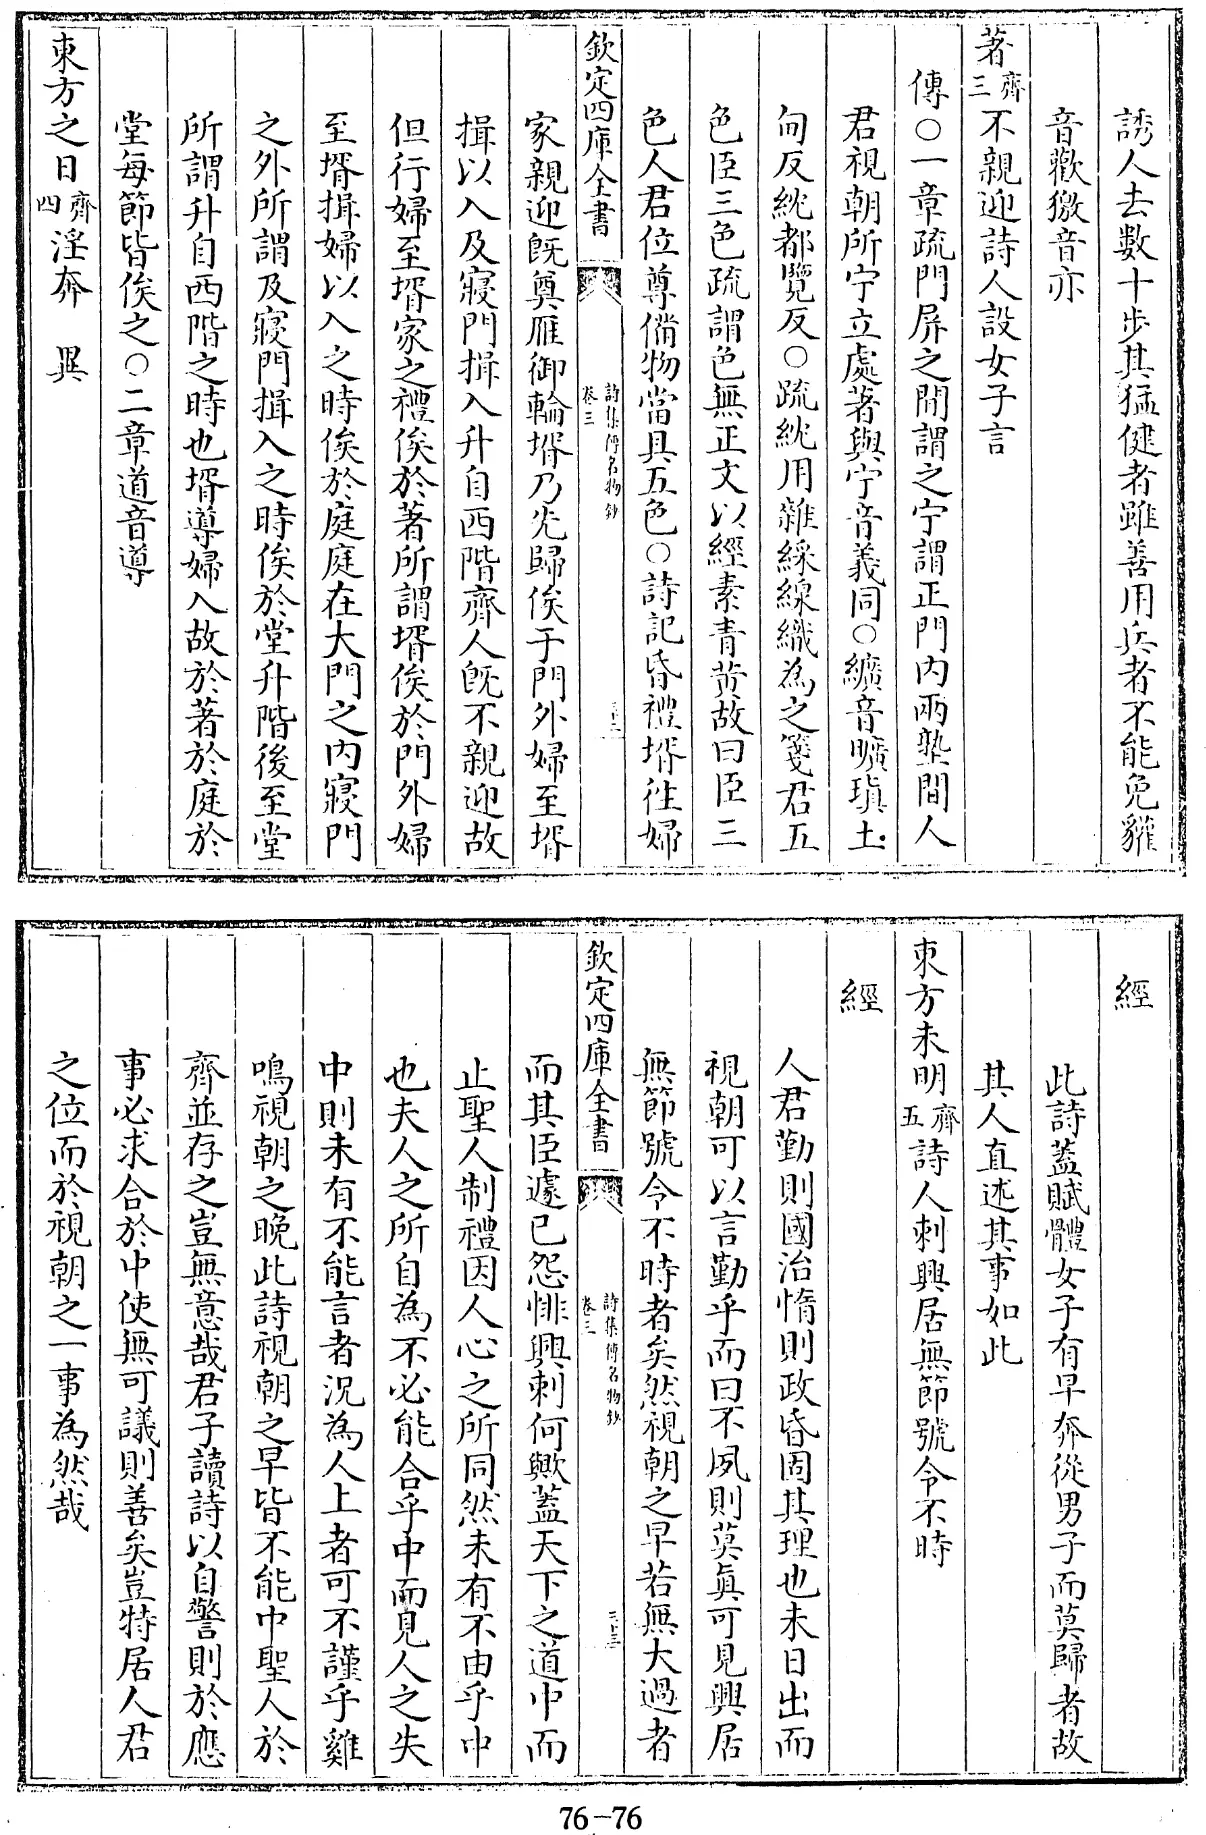 誘人去數十步其猛健者雖善用兵者不能免貛
音歡獥音亦
著齊三不親迎詩人設女子言
傳○一章疏門屏之間謂之宁謂正門内兩塾間人
君視朝所宁立處著與宁音義同○纊音曠瑱土
甸反紞都覽反○疏紞用雜綵線織為之箋君五
色臣三色疏謂色無正文以經素青黄故曰臣三
色人君位尊備物當具五色○詩記昏禮壻徃婦
欽定四庫全書
詩集傳名物鈔
卷三
三十二
家親迎既奠雁御輪壻乃先歸俟于門外婦至壻
揖以入及寢門揖入升自西階齊人既不親迎故
但行婦至壻家之禮俟於著所謂壻俟於門外婦
至壻揖婦以入之時俟於庭庭在大門之内寢門
之外所謂及寢門揖入之時俟於堂升階後至堂
所謂升自西階之時也壻導婦入故於著於庭於
堂每節皆俟之○二章道音導
東方之日齊四淫奔 異
經
此詩蓋賦體女子有早奔從男子而莫歸者故
其人直述其事如此
東方未明齊五詩人刺興居無節號令不時
經
人君勤則國治惰則政昏固其理也未日出而
視朝可以言勤乎而曰不夙則莫眞可見興居
無節號令不時者矣然視朝之早若無大過者
欽定四庫全書
詩集傳名物鈔
卷三
三十三
而其臣遽已怨悱興刺何歟蓋天下之道中而
止聖人制禮因人心之所同然未有不由乎中
也夫人之所自為不必能合乎中而見人之失
中則未有不能言者況為人上者可不謹乎雞
鳴視朝之晚此詩視朝之早皆不能中聖人於
齊並存之豈無意哉君子讀詩以自警則於應
事必求合於中使無可議則善矣豈特居人君
之位而於視朝之一事為然哉
76-76